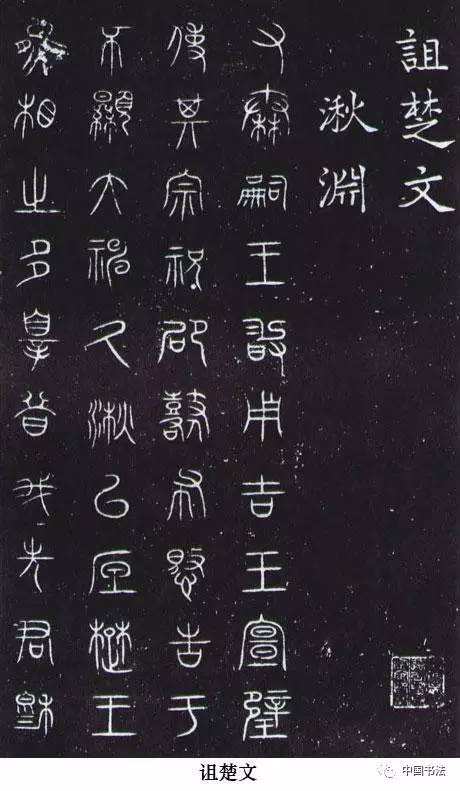 詛楚文
湫淵
又秦嗣王敢用吉玉宣璧
使其宗祝卲鼛布憼告于
不顯大神久湫㠯厎楚王
熊相之多辠昔我先君穆
诅楚文
中国书法